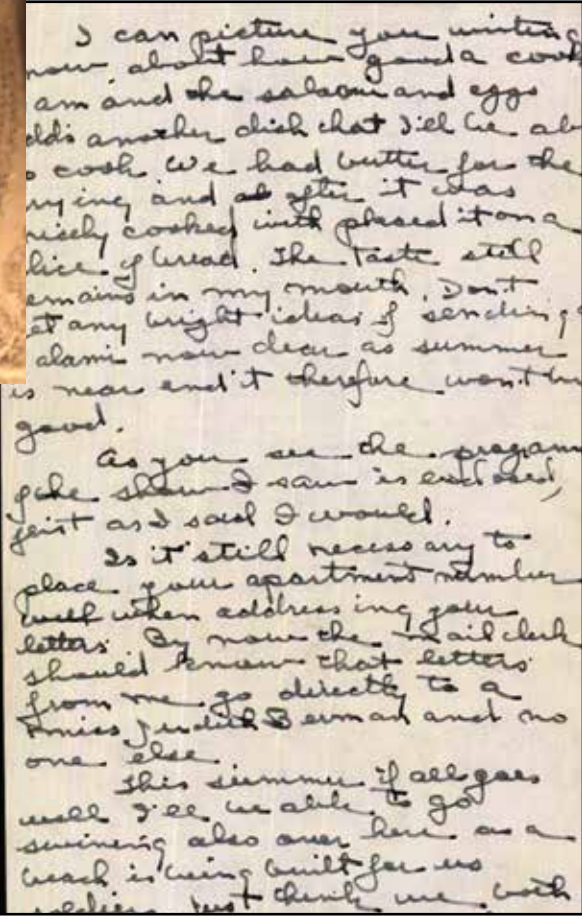 I can picture you writing
now about how good a cook
am and the salaomi and eggs
dds another dish that I'll be ab
o cook. We had butter for the
rying and after it was
nicely cooked placed it on a
lice of bread. The taste still
emains in my mouth. Don't
et any bright ideas of sending
alami now dear as summer
is near and it therefore won't
good.
As you see the program
of the show I saw is enclosed,
just as I said I would.
Is it still necessary to
place your apartment number
when addressing your
letters. By now the mail clerk
should know that letters
from me go directly to a
miss Judith Berman and no
one else.
This summer if all goes
well I'll be able to go
swiming also over here as a
beach is being built for us
soldiers. Just think we both